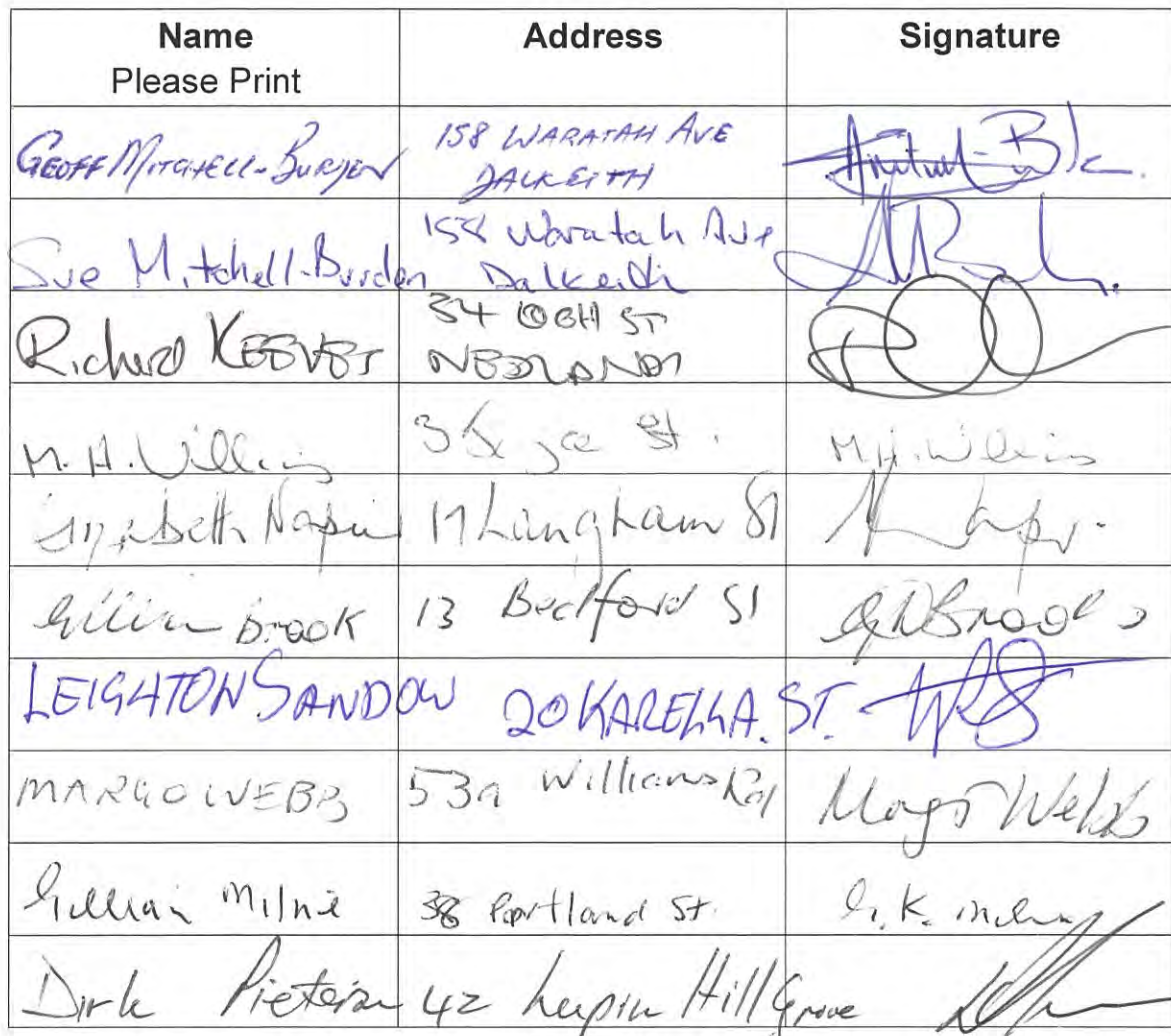 Name Address Signature
Please Print
GEOFF MITCHELL-BURDEN 158 WARATAH AVE
DALKEITH
Sue Mitchell-Burden 158 Waratah Ave
Dalkeith
Richard KEEVES 34 ST
NEDLANDS
M. H. 3 St. M.H.
Elizabeth Napier 17 Langham St
Gillian Brook 13 Bedford St Brook
LEIGHTON SANDOW 20 KARELLA. ST.
MARGO WEBB 53a Williams Rd Margo Webb
Gillian Milne 38 Portland St. G. K.
Dirk 42 Hill Grove